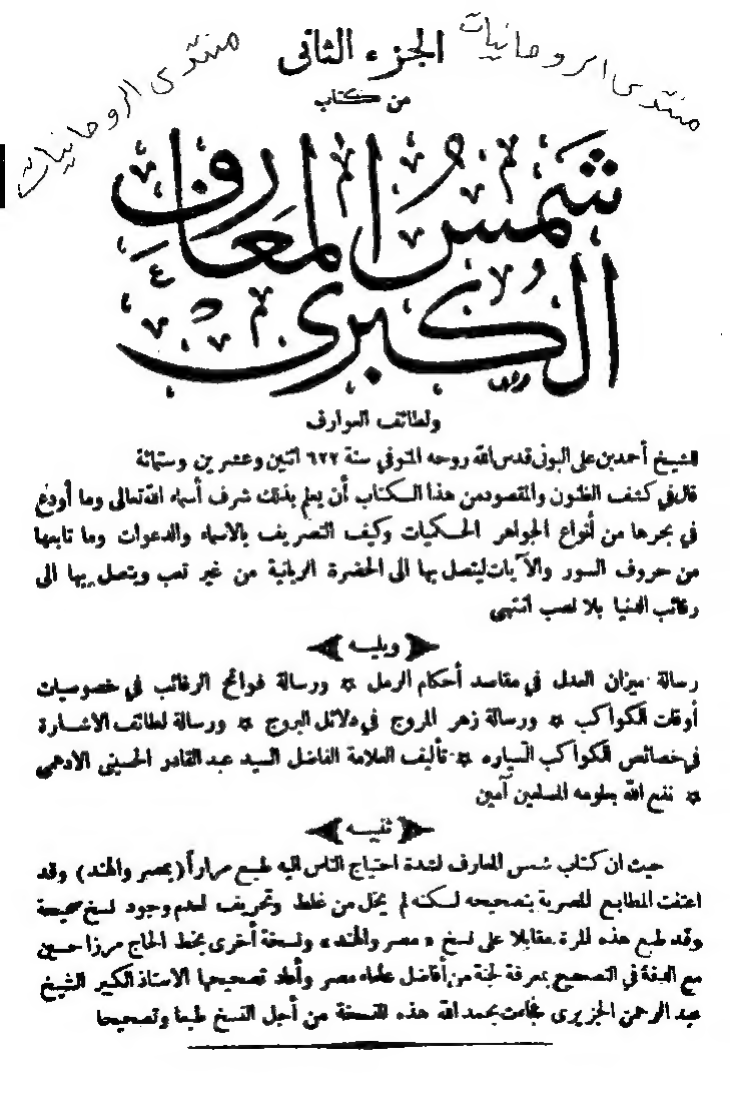 منتدى الروحانيات
منتدى الروحانيات
الجزء الثاني
من كتاب
شمس المعارف
الكبرى
ولطائف العوارف
للشيخ أحمد بن على البونى قدس الله روحه المتوفي سنة ٦٢٢ اثنين وعشرين وستمائة
قال في كشف الظنون والمقصود من هذا الكتاب أن يعلم بذلك شرف أسماء الله تعالى وما أودع
في بحرها من أنواع الجواهر الحكميات وكيف التصريف بالاسماء والدعوات وما تابعها
من حروف السور والآيات ليتصل بها الى الحضرة الربانية من غير تعب ويتصل بها الى
رقائب الدنيا بلا نصب انتهى
ويليه
رسالة ميزان العدل في مقاصد أحكام الرمل * ورسالة فواتح الرغائب في خصوصيات
أوقات الكواكب * ورسالة زهر المروج في دلائل البروج * ورسالة لطائف الاشارة
في خصائص الكواكب السياره * تأليف العلامة الفاضل السيد عبد القادر الحسينى الادهمى
* نفع الله بعلومه المسلمين آمين
تنبيه
حيث ان كتاب شمس المعارف لشدة احتياج الناس اليه طبع مراراً (بمصر والهند) وقد
اعتنت المطابع المصرية بتصحيحه لكنه لم يخل من غلط وتحريف لعدم وجود نسخ صحيحة
وقد طبع هذه المرة مقابلا على نسخ « مصر والهند » ونسخة أخرى بخط الحاج مرزا حسين
مع الدقة في التصحيح بمعرفة لجنة من أفاضل علماء مصر وأعاد تصحيحها الاستاذ الكبير الشيخ
عبد الرحمن الجزيرى فجاءت بحمد الله هذه النسخة من أجل النسخ طبعا وتصحيحا